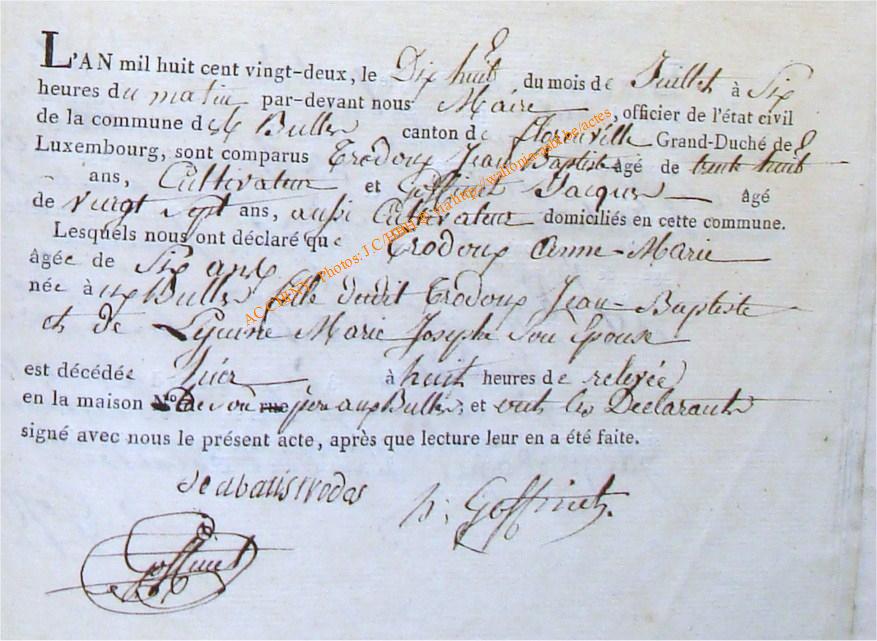 L'AN mil huit cent vingt-deux, le Dix huit du mois de Juillet à Six
heures du matin par-devant nous Maire, officier de l'état civil
de la commune de Bulles canton de florenville Grand-Duché de
Luxembourg, sont comparus Trodoux Jean Baptiste âgé de trente huit
ans, Cultivateur et Goffinet Jacques âgé
de vingt Sept ans, aussi Cultivateur domiciliés en cette commune.
Lesquels nous ont déclaré que Trodoux Anne-Marie
âgée de Six ans
née à aux Bulles fille dudit Trodoux Jean-Baptiste
et de Marie Josephe Son Epouse
est décédée hier à huit heures de relevée
en la maison de Son père aux Bulles, et ont les Declarants
signé avec nous le présent acte, après que lecture leur en a été faite.
Goffinet.
Goffinet